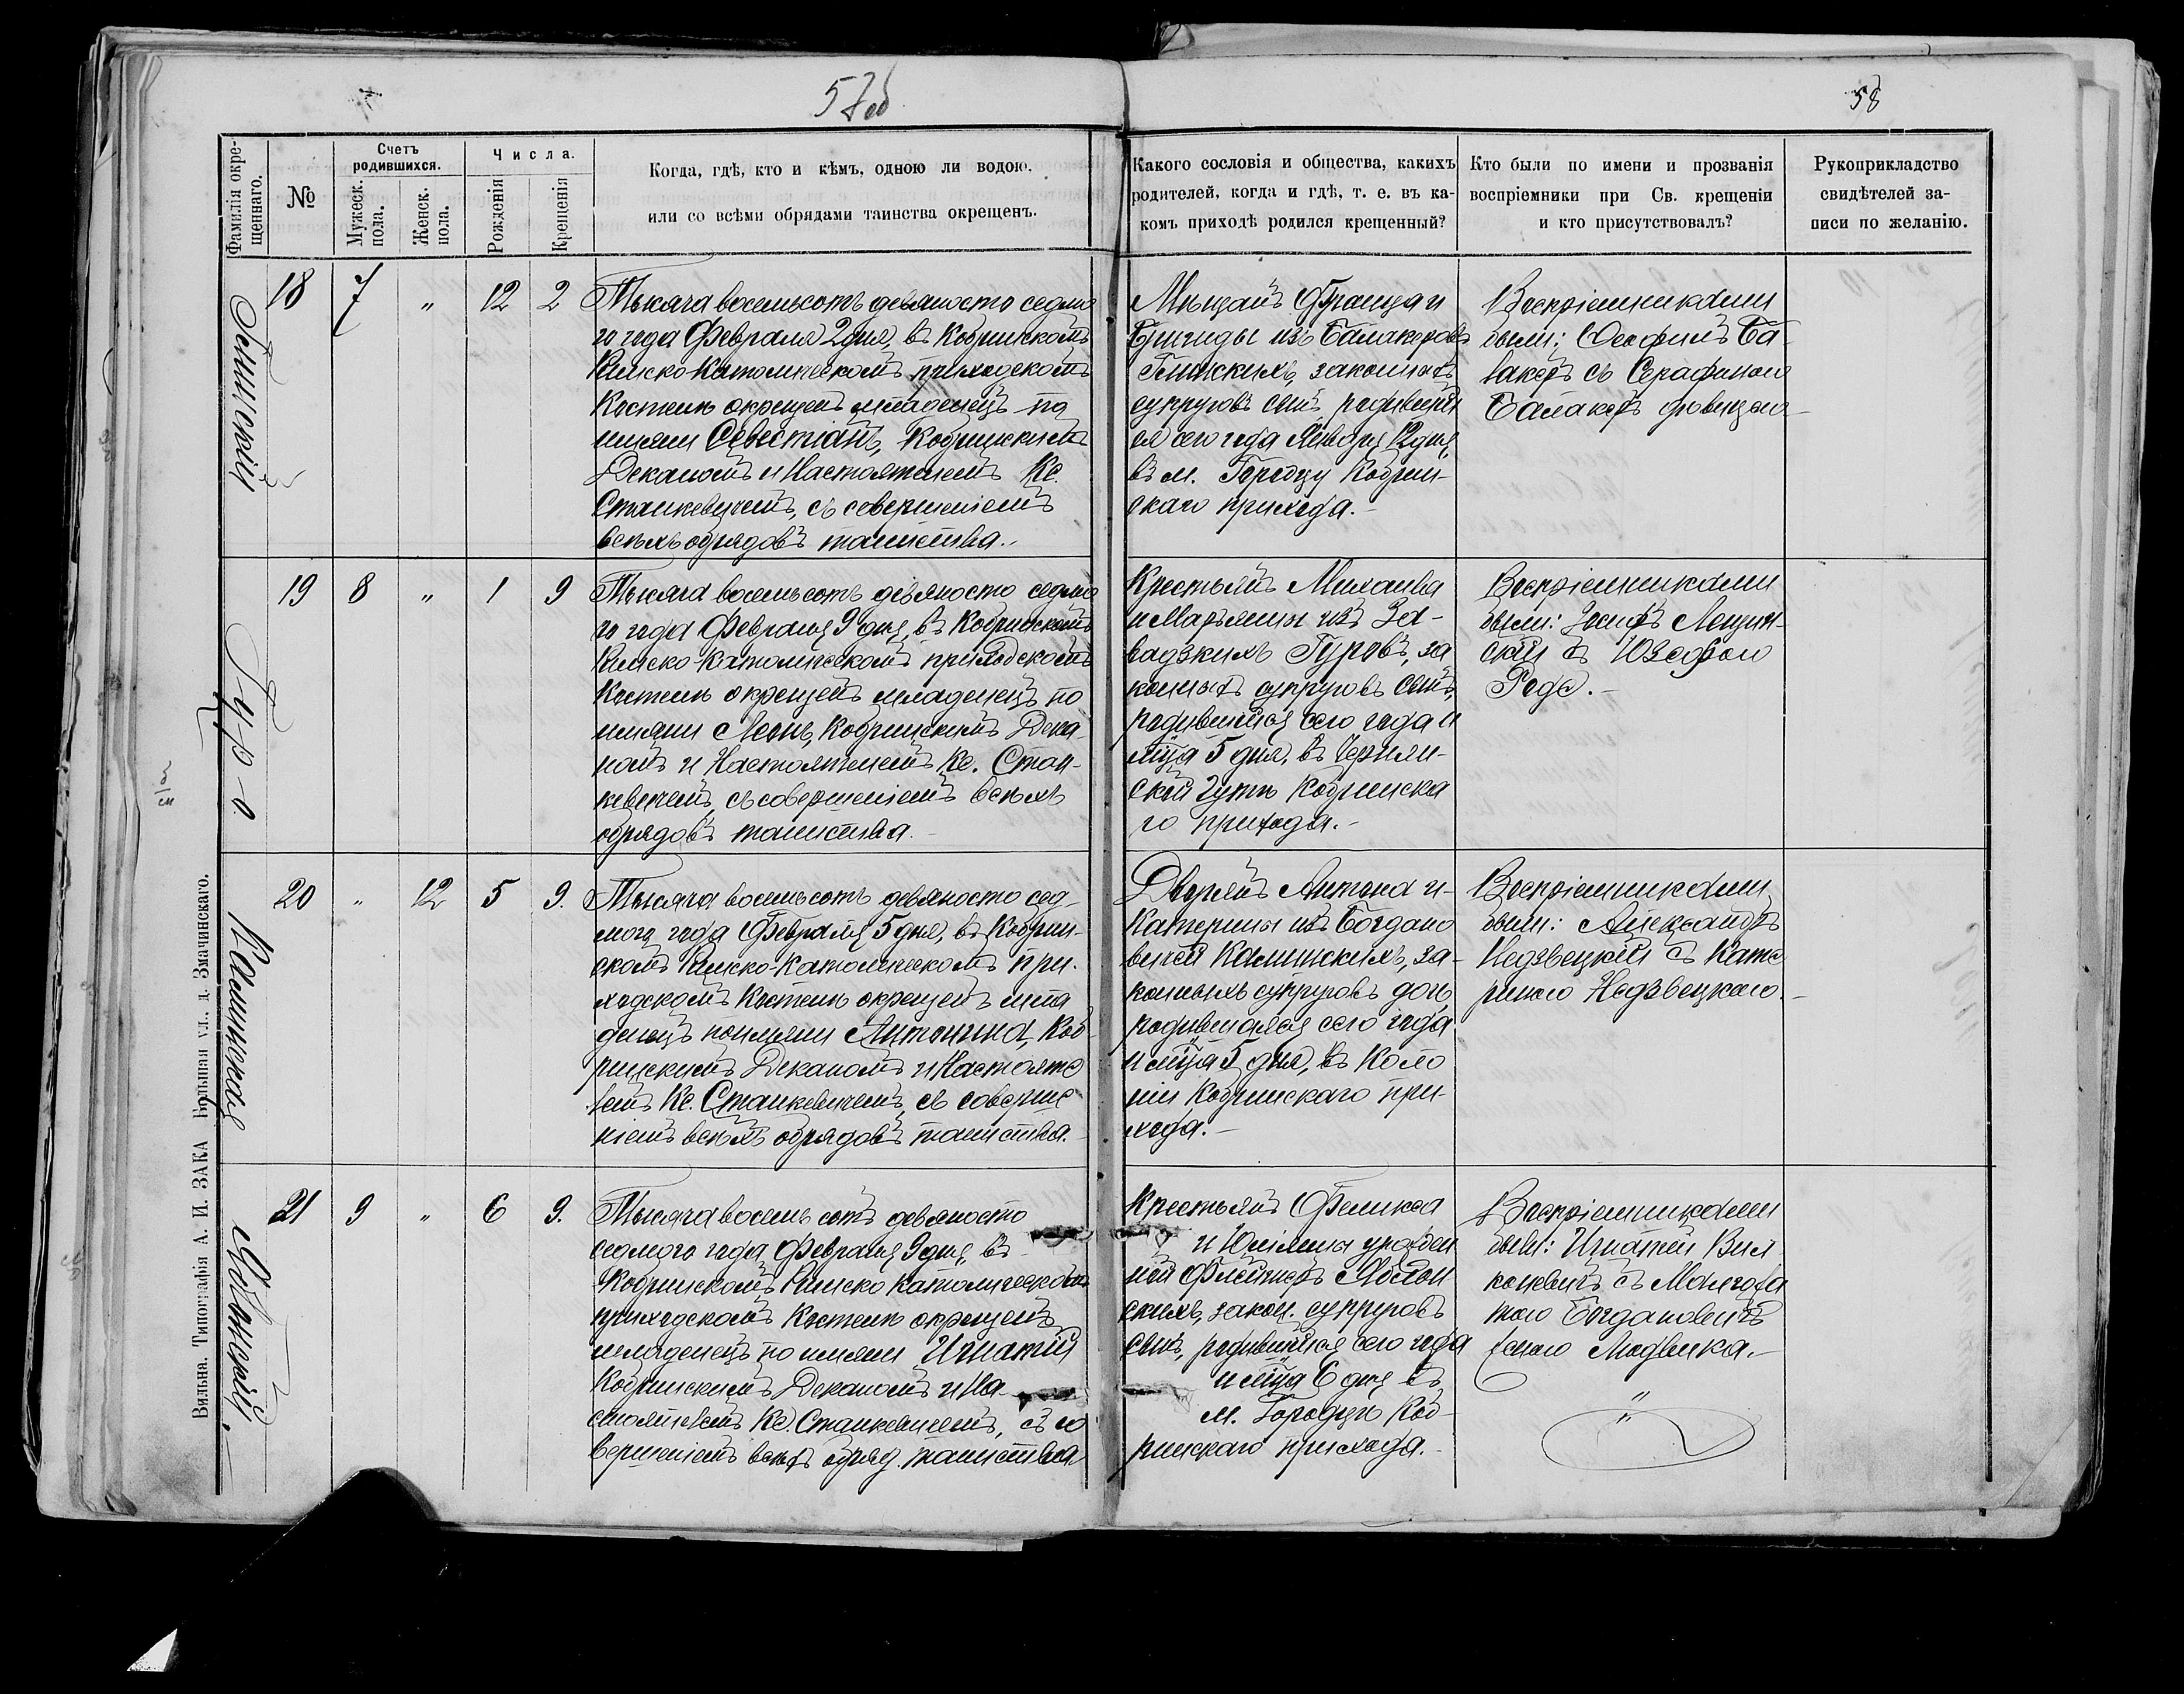 57об
58
Фамилія окре-
щеннаго.
№
Счетъ
родившихся.
Мужеск.
пола.
Женск.
пола.
Числа.
Рожденія
Крещенія
Когда, гдѣ, кто и кѣмъ, одною ли водою,
или со всѣми обрядами таинства окрещенъ.
Какого сословія и общества, какихъ
родителей, когда и гдѣ, т. е. въ ка-
комъ приходѣ родился крещенный?
Кто были по имени и прозванія
воспріемники при Св. крещеніи
и кто присутствовалъ?
Рукоприкладство
свидѣтелей за-
писи по желанію.
Глинскій
18
7
"
12
2
Тысяча восемьсотъ девяносто седмо
го года Февраля 2 дня, въ Кобринскомъ
Римско Католическомъ приходскомъ
Костелѣ окрещенъ младенецъ по
имени Севестіанъ, Кобринскимъ
Деканомъ и Настоятелемъ Кс.
Станкевичемъ, съ совершеніемъ
всѣхъ обрядовъ таинства.
Мѣщанъ Франца и
Бригиды изъ Балакеровъ
Глинскихъ, законныхъ
супруговъ сынъ, родивший
ся сего года Января 12 дня,
въ м. Городцу Кобрин-
скаго прихода.-
Воспріемниками
были: Феофилъ Ба-
лакеръ съ Серафиною
Балакеръ
Гуръ.
19
8
"
1
9
Тысяча восемьсотъ девяносто седмо
го года Февраля 9 дня, въ Кобринскомъ
Римско-Католическомъ приходскомъ
Костелѣ окрещенъ младенецъ по
имени Леонъ, Кобринскимъ Дека-
номъ и Настоятелемъ Кс. Стан-
кевичемъ, съ совершеніемъ всѣхъ
обрядовъ таинства.-
Крестьянъ Михаила
и Марьянны изъ За-
вадзкихъ Гуровъ, за
конныхъ супруговъ сынъ,
родившійся сего года и
мца 5 дня, въ
ской Гутѣ Кобринска
го прихода.-
Воспріемниками
были: Іосифъ
скій съ Юзефою
Родэ.-
Калинская
20
"
12
5
9.
Тысяча восемьсотъ девяносто сед-
мого года Февраля 5 дня, въ Кобрин-
скомъ Римско-Католическомъ при-
ходскомъ Костелѣ окрещенъ мла
денецъ по имени Антонина, Коб-
ринскимъ Деканомъ и Настояте
лемъ Кс. Станкевичемъ, съ соверше
ніемъ всѣхъ обрядовъ таинства.-
Дворянъ Антона и-
Катерины изъ Богдано
вичей Калинскихъ, за-
конныхъ супруговъ дочь,
родившаяся сего года
и мца 5 дня, въ Коло
ніи Кобринскаго при-
хода.-
Воспріемниками
были: Александръ
Недзвецкій съ Кате
риною Недзвецкою.-
21
9
"
6
9.
Тысяча восемь сотъ девяносто
седмого года Февраля 9 дня, въ
Кобринскомъ Римско Католическомъ
приходскомъ Костелѣ окрещенъ
младенецъ по имени Игнатій
Кобринскимъ Деканомъ и На-
стоятелемъ Кс. Станкевичемъ, съ со
вершеніемъ всѣхъ обряд. таинства
Крестьянъ Феликса
и Юліянны урожден
ной
скихъ, закон. супруговъ
сынъ, родившійся сего года
и мца 6 дня въ
м. Городцѣ Коб-
ринскаго прихода.-
Воспріемниками
были: Игнатій Вил
коневичъ съ Малгожа
тою Богдановичъ
"
"
Вильна. Типографія А. И. ЗАКА Большая ул., д. Змачинскаго.